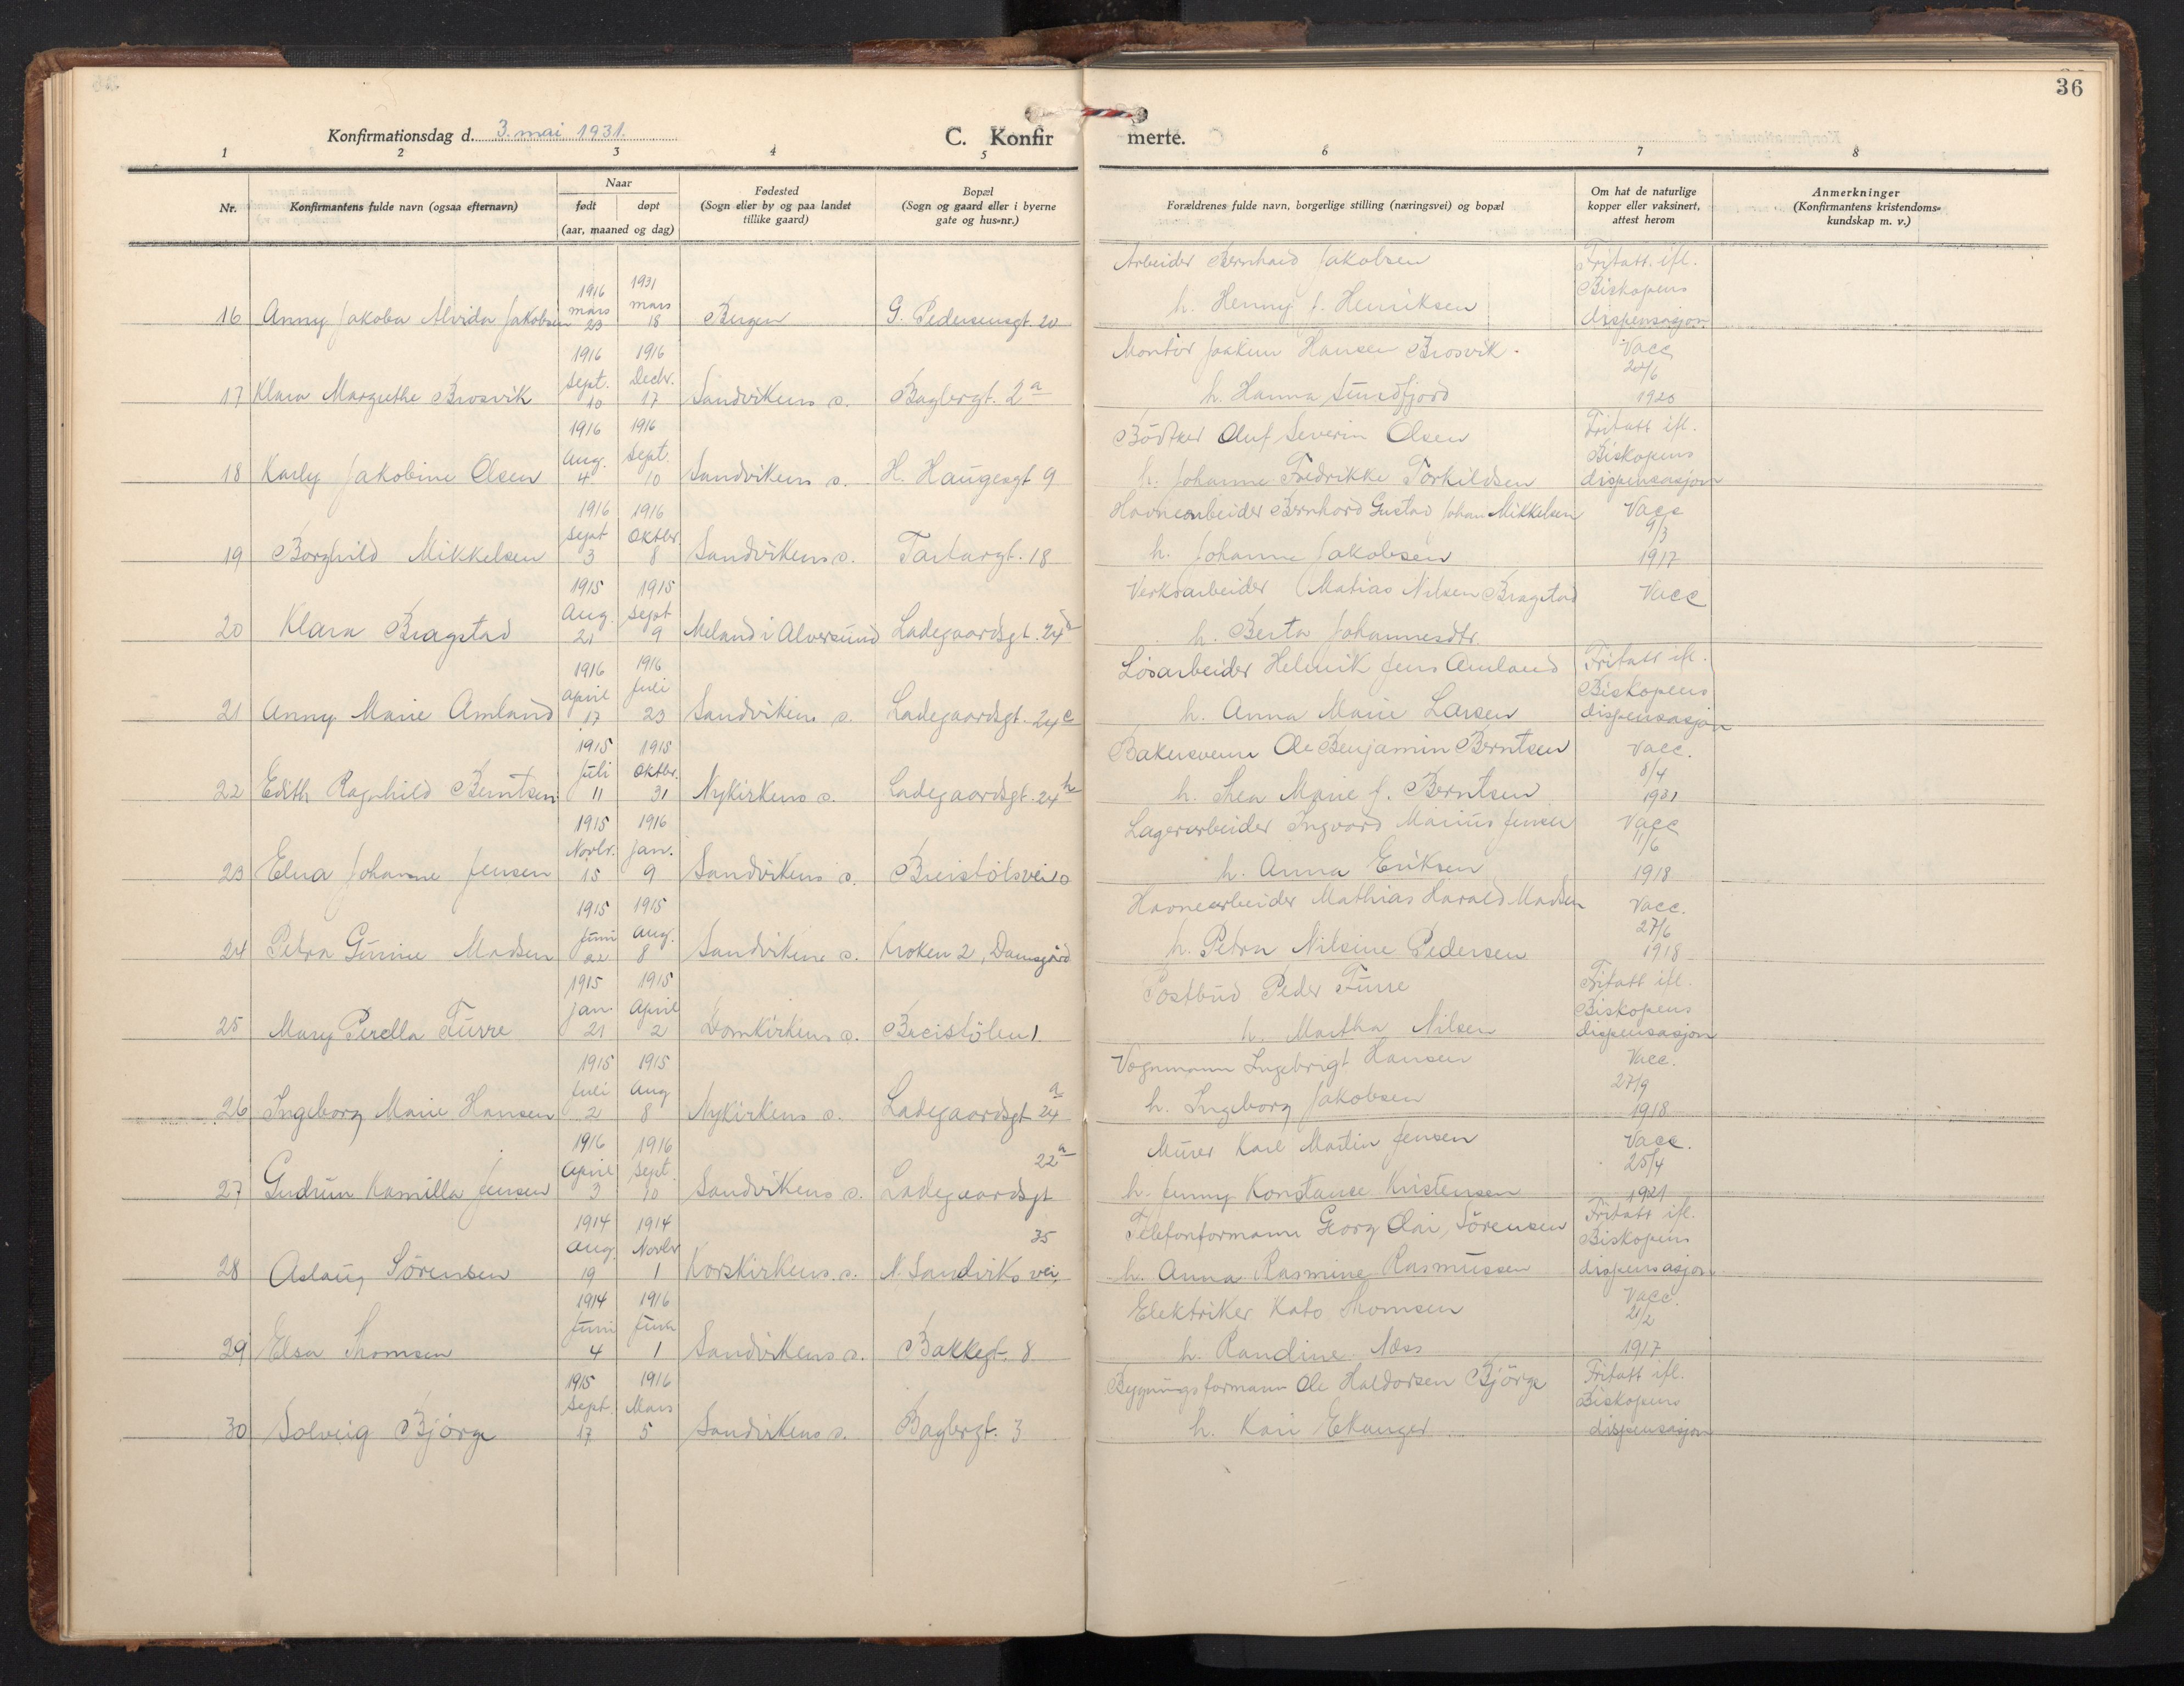 36
Konfirmationsdag d. 3. mai 1931.
C. Konfirmerte.
1 2 3 4 5 6 7 8
Nr.
Konfirmantens fulde navn (ogsaa efternavn)
Naar
født døpt
(aar, maaned og dag)
Fødested
(Sogn eller by og paa landet
tillike gaard)
Bopæl
(Sogn og gaard eller i byerne
gate og hus-nr.)
Forældrenes fulde navn, borgerlige stilling (næringsvei) og bopæl
Om hat de naturlige
kopper eller vaksinert,
attest herom
Anmerkninger
(Konfirmantens kristendoms-
kundskap m. v.)
Arbeider Bernhard Jakobsen Fritatt ifl.
1916 1931 Biskopens
mars mars h. Henny f. Henriksen
16 Anny Jakoba Alvida Jakobsen 23 18 Bergen G. Pedersensgt. 20 dispensasjon
1916 1916 Montör Joakim Hansen Brosvik. Vacc
Sept. Decbr.
17 Klara Margrethe Brosvik 10 17 Sandvikens s. Baglergt. 2a h. Hanna Sundfjord 1920
1916 1916 Bödtker Oluf Severin Olsen Fritatt ifl.
Aug. Sept. Biskopens
18 Karly Jakobine Olsen 4 10 Sandvikens s. H. Haugesgt 9 h. Johanne Fredrikke Torkildsen dispensasjon
1916 1916 Havnearbeider Bernhard Gustav Johan Mikkelsen Vacc
Sept Oktbr. 9/3
19 Borghild Mikkelsen 3 8 Sandvikens s. Tartargt. 18 h. Johanne Jakobsen 1917
1915 1915 Verksarbeider Matias Nilsen Bragstad Vacc
Aug. Sept
20 Klara Bragstad 21 9 Meland i Alversund Ladegaardsgt. 24 h. Berta Johannesdtr.
1916 1916 Lösarbeider Helmik Jens Amland Fritatt ifl.
April Juli Biskopens
21 Anny Marie Amland 17 23 Sandvikens s. Ladegaardsgt. 24c h. Anna Marie Larsen dispensasjon
1915 1915 Bakersvenn Ole Benjamin Berntsen Vacc.
Juli Oktbr. 8/4
22 Edith Ragnhild Berntsen 11 31 Nykirkens s. Ladegaardsgt. 24 h. Thea Marie f. Berntsen 1931
1915 1916 Lagerarbeider Ingvard Marius Jensen Vacc
Novbr. Jan. 11/6
23 Elna Johanne Jensen 15 9 Sandvikens s. Breistölsvei 10 h. Anna Eriksen 1918
1915 1915 Havnearbeider Mathias Harald Madsen Vacc.
Juni Aug. 27/6
24 Petra Gurine Madsen 22 8 Sandvikens s. Kroken 2, Damsgård h. Petra Nilsine Pedersen 1918
1915 1915 Postbud Peder Furre Fritatt ifl.
Jan. April Biskopens
25 Mary Perella Furre 21 2 Domkirkens s. Breistölen 1. h. Martha Nilsen dispensasjon
1915 1915 Vognmann Ingebrigt Hansen Vacc.
Juli Aug 27/9
26 Ingeborg Marie Hansen 2 8 Nykirkens s. Ladegaardsgt 24a h. Ingeborg Jakobsen 1918
1916 1916 Murer Karl Martin Jensen Vacc.
April Sept. 22a 25/4
27 Gudrun Kamilla Jensen 3 10 Sandvikens s. Ladegaardsgt h. Jenny Konstanse Kristensen 1921
1914 1914 Telefonformann Georg Olai Sörensen Fritatt ifl.
Aug. Novbr 35 Biskopens
28 Aslaug Sörensen 19 1 Korskirkens s. N. Sandviks vei h. Anna Rasmine Rasmussen dispensasjon
1914 1916 Elektriker Kato Thomsen Vacc.
Juni 21/2
29 Elsa Thomsen 4 1 Sandvikens s. Bakkegt. 8 h. Randine Næss 1917
1915 1916 Bygningsformann Ole Haldorsen Björge Fritatt ifl.
Sept. Mars Biskopens
30 Solveig Björge 17 5 Sandvikens s. Baglergt. 3 h. Kari Ekanger dispensasjon